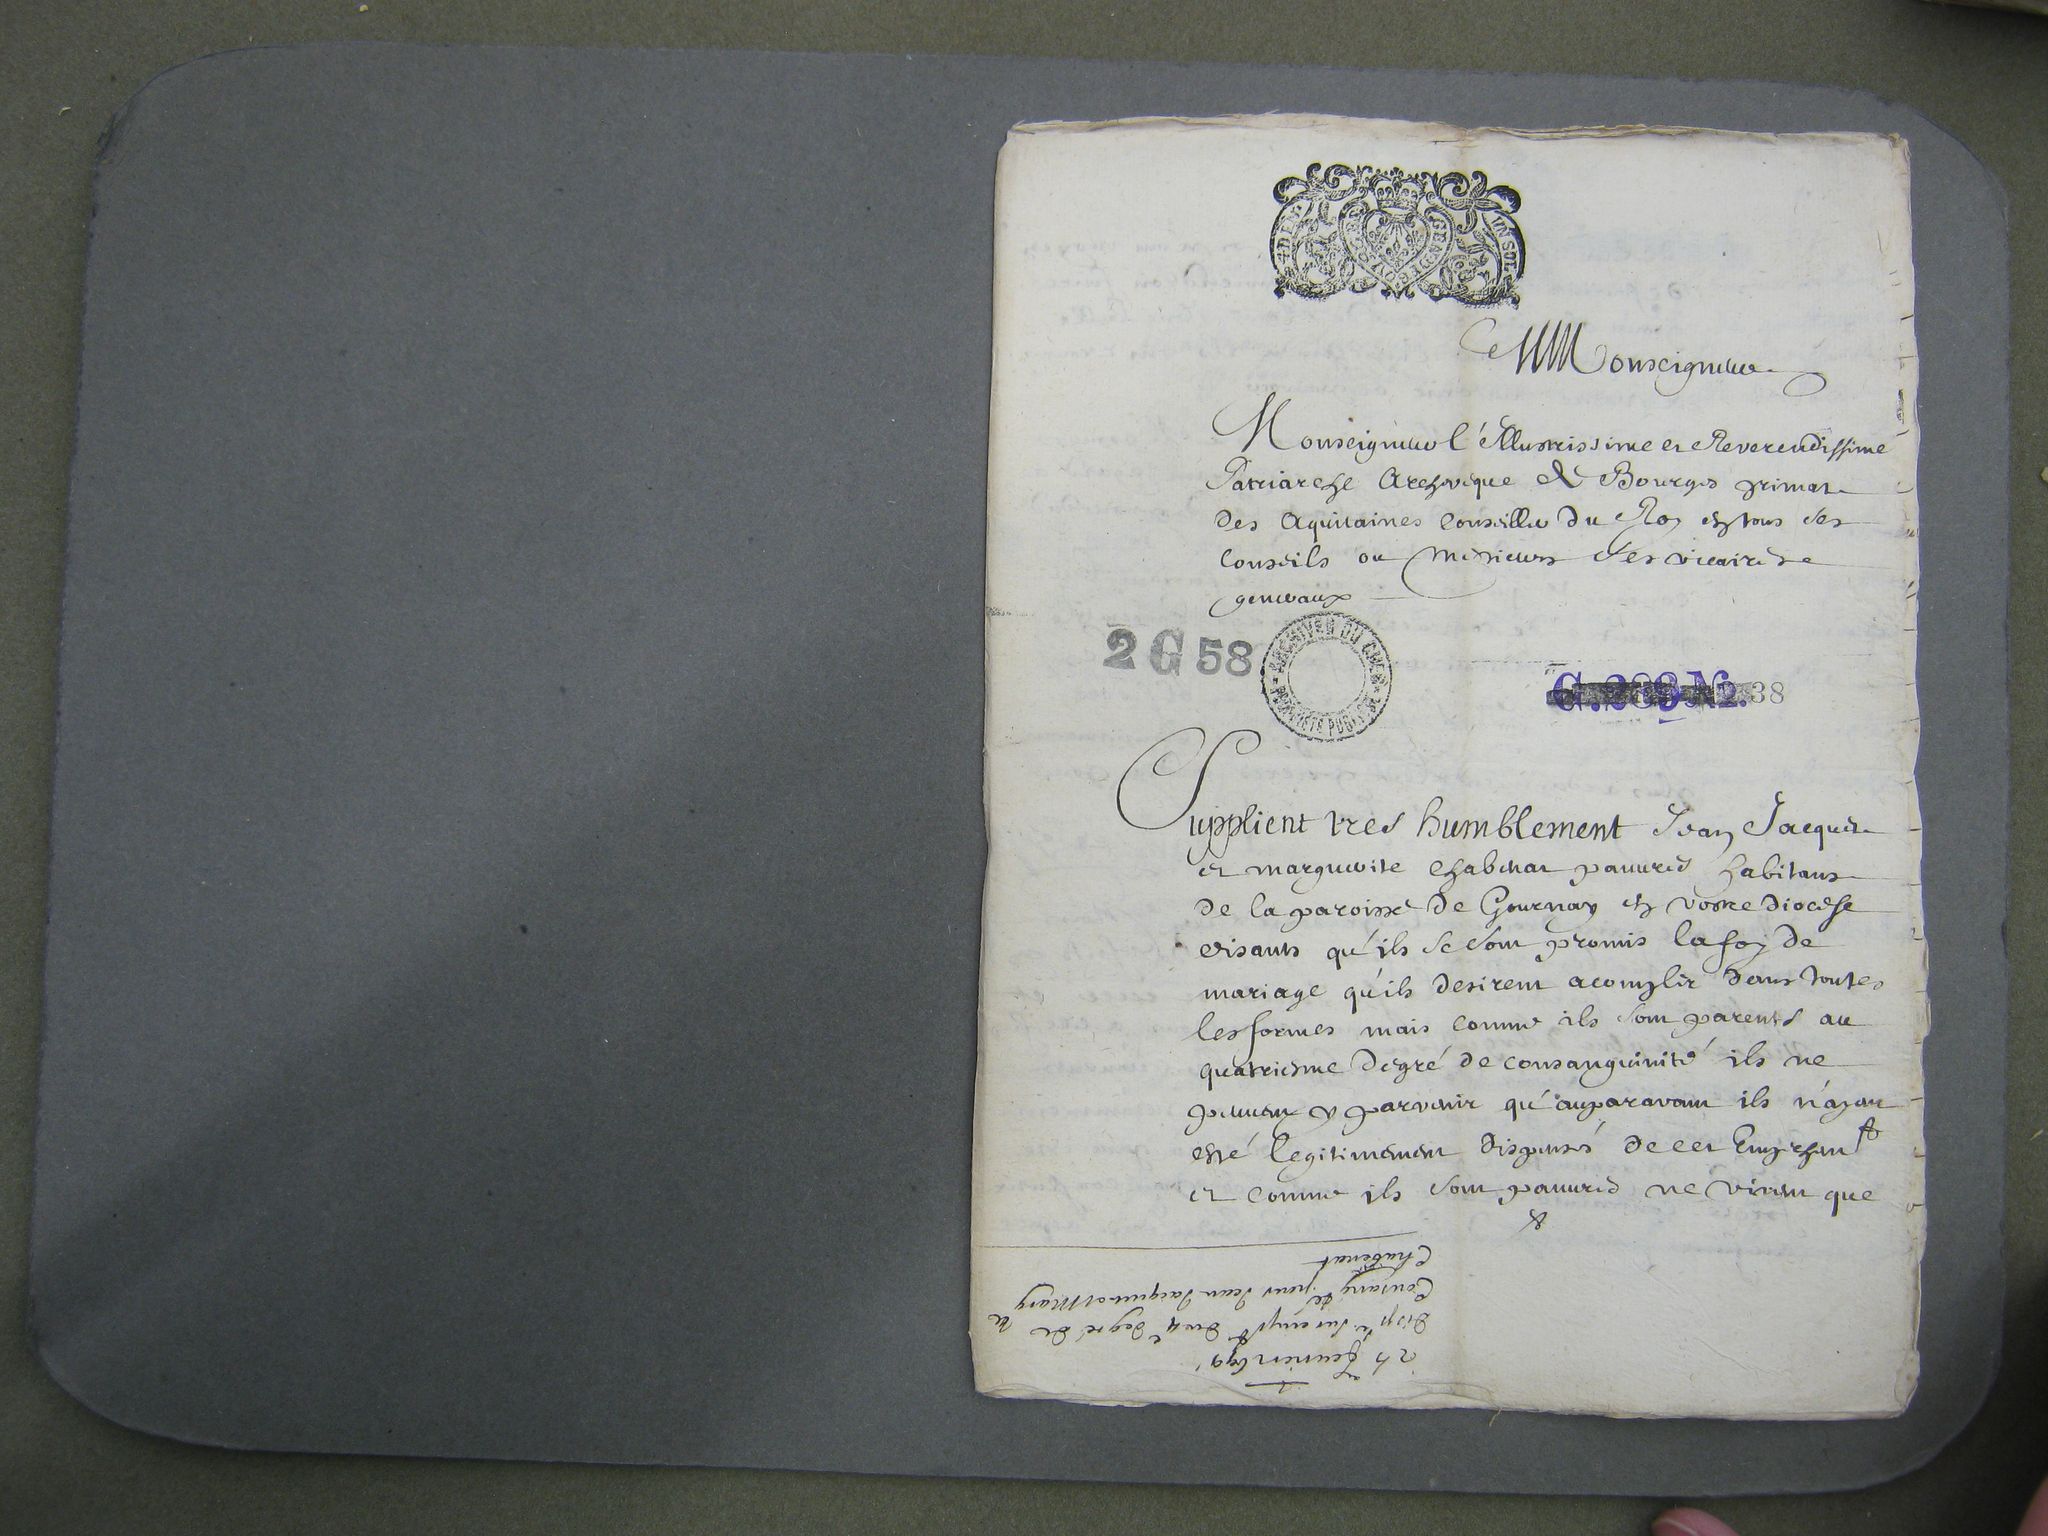 VN SOL
A Monseigneur
Monseigneur l'Illustrissime et Reverendissime
Patriarche Archevêque de Bourges primat
des Aquitaines Conseiller du Roy en tous ses
Conseils ou messieurs ses vicaires
generaux
2 G 58
ARCHIVES DU CHER
PROPRIÉTÉ PUBLIQUE
G. 289 No. 38
Supplient tres humblement Jean Jacquet
et marguerite Chabenat pauvres habitans
de la paroisse de Gournay en vostre diocese
disants qu'ils se sont promis la foy de
mariage qu'ils desirent acomplir dans toutes
les formes mais comme ils sont parents au
quatriesme degré de consanguinité ils ne
peuvent y parvenir qu'auparavant ils n'ayent
esté legitimement dispensés de cet Empeschemt
et comme ils sont pauvres ne vivent que
24 Jenvier 1691
disp. sur empt du 4e degré de
Consang.té pour Jean Jacquet et Marg.te
Chabenat